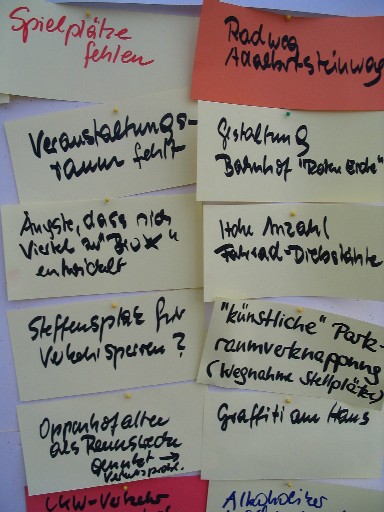 Spielplätze
fehlen
Radweg
Adalbertsteinweg
Veranstaltungs-
raum fehlt
Gestaltung
Bahnhof "Rote Erde"
Ängste, dass sich
Viertel zu "Bronx"
entwickelt
Hohe Anzahl
Fahrrad-Diebstähle
Steffensplatz für
Verkehr sperren?
"künstliche" Park-
raumverknappung
(Wegnahme Stellplätze)
Oppenhofallee
als Rennstrecke
genutzt →
Graffiti am Haus
LKW-Verkehr
Alkoholiker